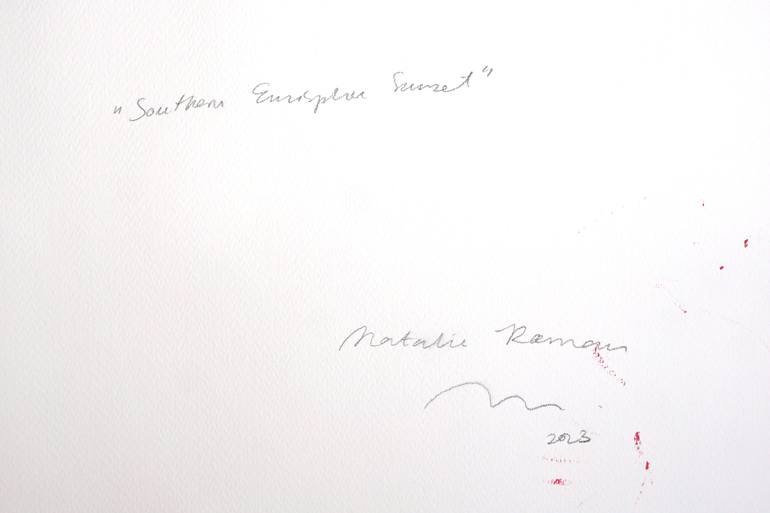 "Southern Emisphere Sunset"
Natalie Roman
2023